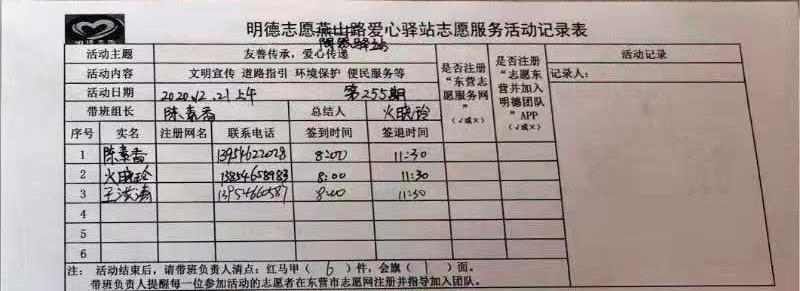 明德志愿燕山路爱心驿站志愿服务活动记录表
活动主题 友善传承，爱心传递
活动内容 文明宣传 道路指引 环境保护 便民服务等
活动日期 2020.12.21上午 第255期
带班组长 陈素香 总结人 火晓玲
是否注册“东营志愿服务网”（√或×）
是否注册“志愿东营并加入明德团队”APP（√或×）
活动记录
记录人：
序号 实名 注册网名 联系电话 签到时间 签退时间
1 陈素香 13954622028 8:00 11:30
2 火晓玲 13854658983 8:00 11:30
3 王洪涛 13954660587 8:00 11:30
4
5
6
注： 活动结束后，请带班负责人清点：红马甲（ 6 ）件，会旗（ 1 ）面。
带班负责人提醒每一位参加活动的志愿者在东营市志愿网注册并指导加入团队。